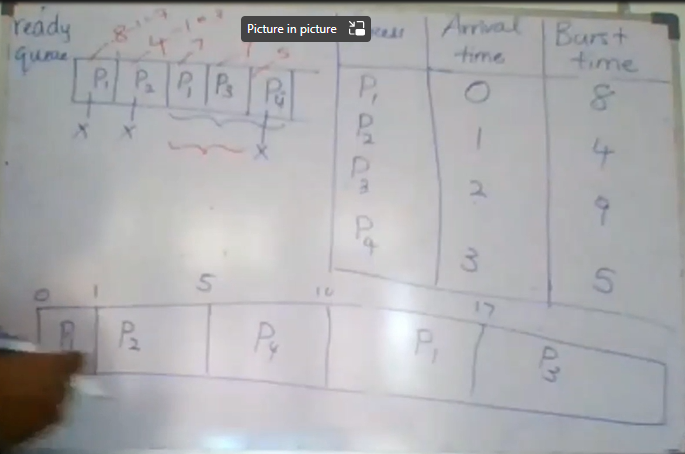 ready
queue
8 -1=7
4 -1=3
7
5
P1 P2 P1 P3 P4
x x x
Picture in picture
Arrival time
Burst time
P1 0 8
P2 1 4
P3 2 9
P4 3 5
0 1 5 10 17
P1 P2 P4 P1 P3